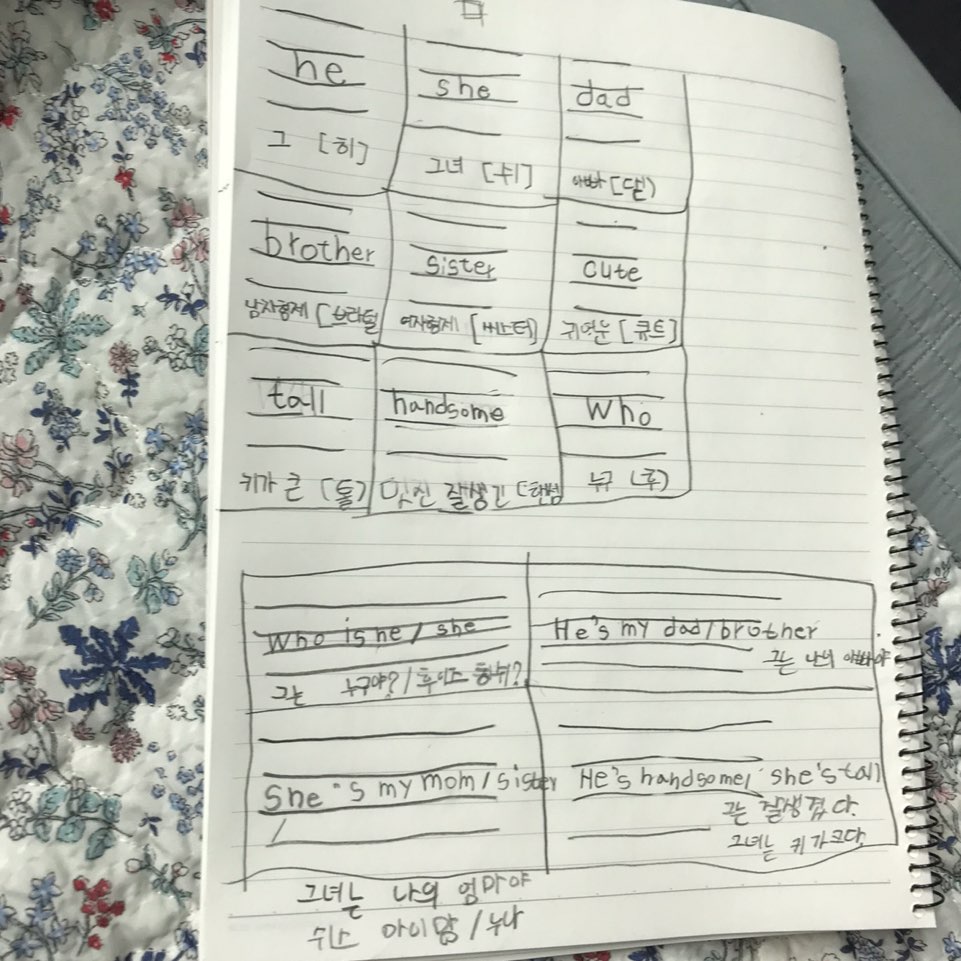 he
그 [히]
she
그녀 [쉬]
dad
아빠 [댇]
brother
남자형제 [브라덜
sister
여자형제 [씨스터]
cute
귀여운 [큐트]
tall
키가 큰 [톨]
handsome
멋진 잘생긴 [핸섬
who
누구 [후]
Who is he / she
그는 누구야? / 후이즈 히쉬?
He's my dad/brother
그는 나의 아빠야
She's my mom/sister
He's handsome/ she's tall
그는 잘생겼다.
그녀는 키가크다.
그녀는 나의 엄마야
쉬스 마이맘 / 누나